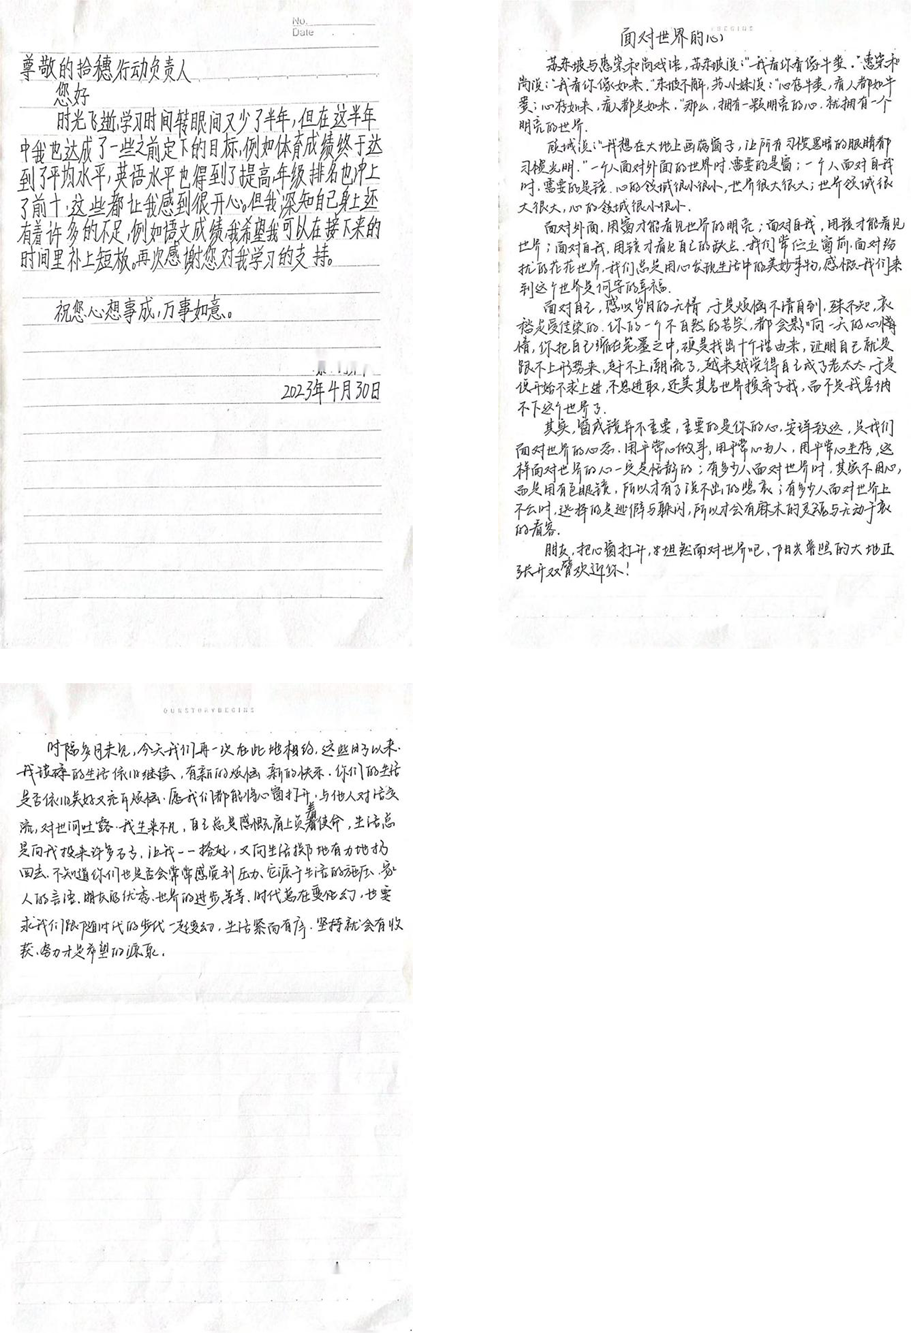 No.
Date
尊敬的拾穗行动负责人
您好
时光飞逝,学习时间转眼间又少了半年,但在这半年
中我也达成了一些之前定下的目标,例如体育成绩终于达
到了平均水平,英语水平也得到了提高,年级排名也冲上
了前十,这些都让我感到很开心。但我深知自己身上还
有着许多的不足,例如语文成绩,我希望我可以在接下来的
时间里补上短板。再次感谢您对我学习的支持。
祝您心想事成,万事如意。
2023年4月30日
面对世界的心
苏东坡与佛印和尚戏语,苏东坡说:“我看你看像牛粪。”佛印和
尚说:“我看你像如来。”东坡不解,苏小妹说:“心存牛粪,看人都如牛
粪;心存如来,看人都是如来。”那么,拥有一颗明亮的心,就拥有一个
明亮的世界.
顾城说:“我想在大地上画满窗子,让所有习惯黑暗的眼睛都
习惯光明.”一个人面对外面的世界时,需要的是窗;一个人面对自我
时,需要的是镜.心的镜城很小很小,世界很大很大;世界镜城很
大很大,心的镜城很小很小.
面对外面,用窗才能看见世界的明亮;面对自我,用镜才能看见
世界;面对自我,用镜才看见自己的缺点.我们常伫立窗前,面对纷
扰的花花世界.我们总是用心发现生活中的美妙事物,感慨我们来
到这个世界是何等的幸福.
面对自己,感叹岁月的无情,于是烦恼不请自到.殊不知,衣
裆是受渲染的.你的一个不自然的苦笑,都会影响一天的心情
情,你把自己缩在笔墨之中,硬是找出十个谱由来,证明自己就是
跟不上形势来,赶不上潮流了,越来越觉得自己成了老太太,于是
便开始不求上进,不思进取,还美其名世界摈弃了我,而不是我容纳
不下这个世界了.
其实,窗或镜并不重要,重要的是你的心,安详豁达,是我们
面对世界的心态.用平常心做事,用平常心为人,用平常心生存,这
样面对世界的心一定是恬静的;有多少人面对世界时,其实不用心,
而是用有色眼镜,所以才有了说不出的悲哀;有多少人面对世界上
不公时,选择的是逃僻与躲闪,所以才会有麻木的灵魂与无动于衷
的看客.
朋友,把心窗打开,坦然面对世界吧,阳光普照的大地正
张开双臂欢迎你!
OURSTORYBEGINS
时隔多月未见,今天我们再一次在此地相约,这些日子以来.
我读碎的生活依旧继续,有新的烦恼,新的快乐.你们的生活
是否依旧美好又充有烦恼.愿我们都能将心窗打开,与他人对话交
流,对世间吐露.我生来不凡,自己总是感慨肩上负着使命,生活总
是向我投来许多石子,让我一一拾起,又向生活掷地有力地扔
回去.不知道你们也是否会常常感觉到压力,它源于生活的施压、家
人的言语、朋友的优秀、世界的进步等等,时代总在变化幻,也要
求我们跟随时代的步伐一起变幻,生活紧而有序.坚持就会有收
获.努力才是希望的源泉.